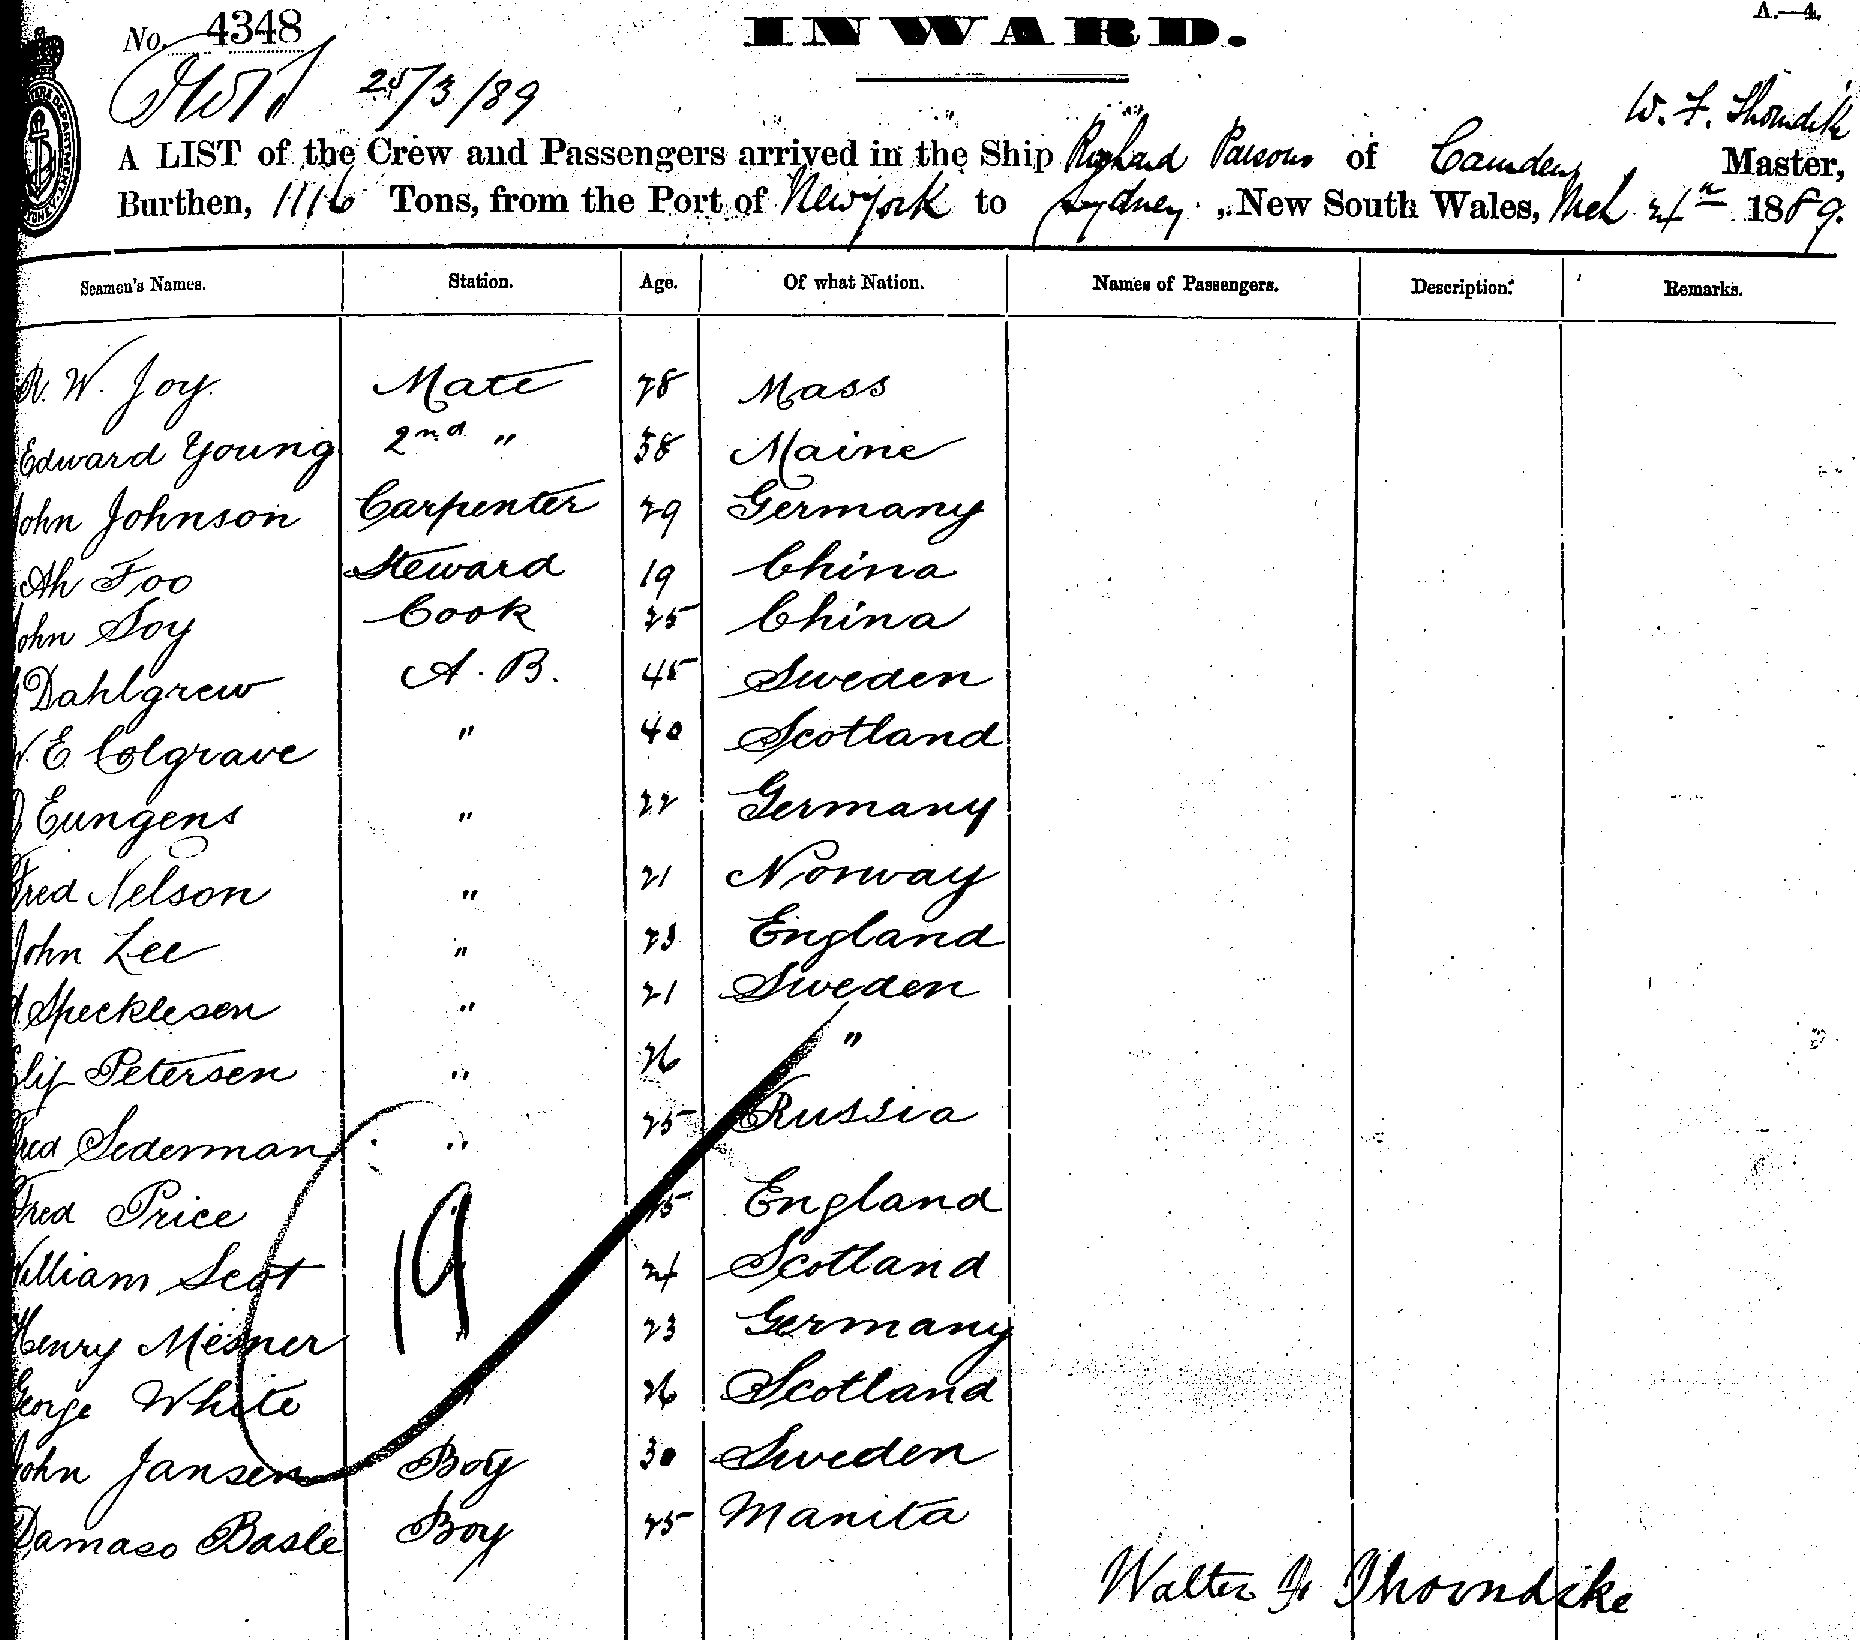 A.—4.
No. 4348
INWARD.
25/3/89
W. F. Thorndike
A LIST of the Crew and Passengers arrived in the Ship Richard Parsons of Camden, Master,
Burthen, 1116 Tons, from the Port of New york to Sydney, New South Wales, Mch 24th 1889.
Seamen's Names. Station. Age. Of what Nation. Names of Passengers. Description. Remarks.
R. W. Joy. Mate 28 Mass
Edward Young 2nd " 38 Maine
John Johnson Carpenter 29 Germany
Ah Foo Steward 19 China
John Soy Cook 25 China
Dahlgrew A. B. 45 Sweden
E Colgrave " 40 Scotland
Eungens " 22 Germany
Fred Nelson " 21 Norway
John Lee " 23 England
Specklesen " 21 Sweden
Petersen " 26 "
Fred Sederman " 25 Russia
Fred Price 25 England
William Scot 24 Scotland
Henry Mesner 23 Germany
George White " 26 Scotland
John Jansen Boy 30 Sweden
Damaso Basle Boy 25 Manila
19
Walter F. Thorndike